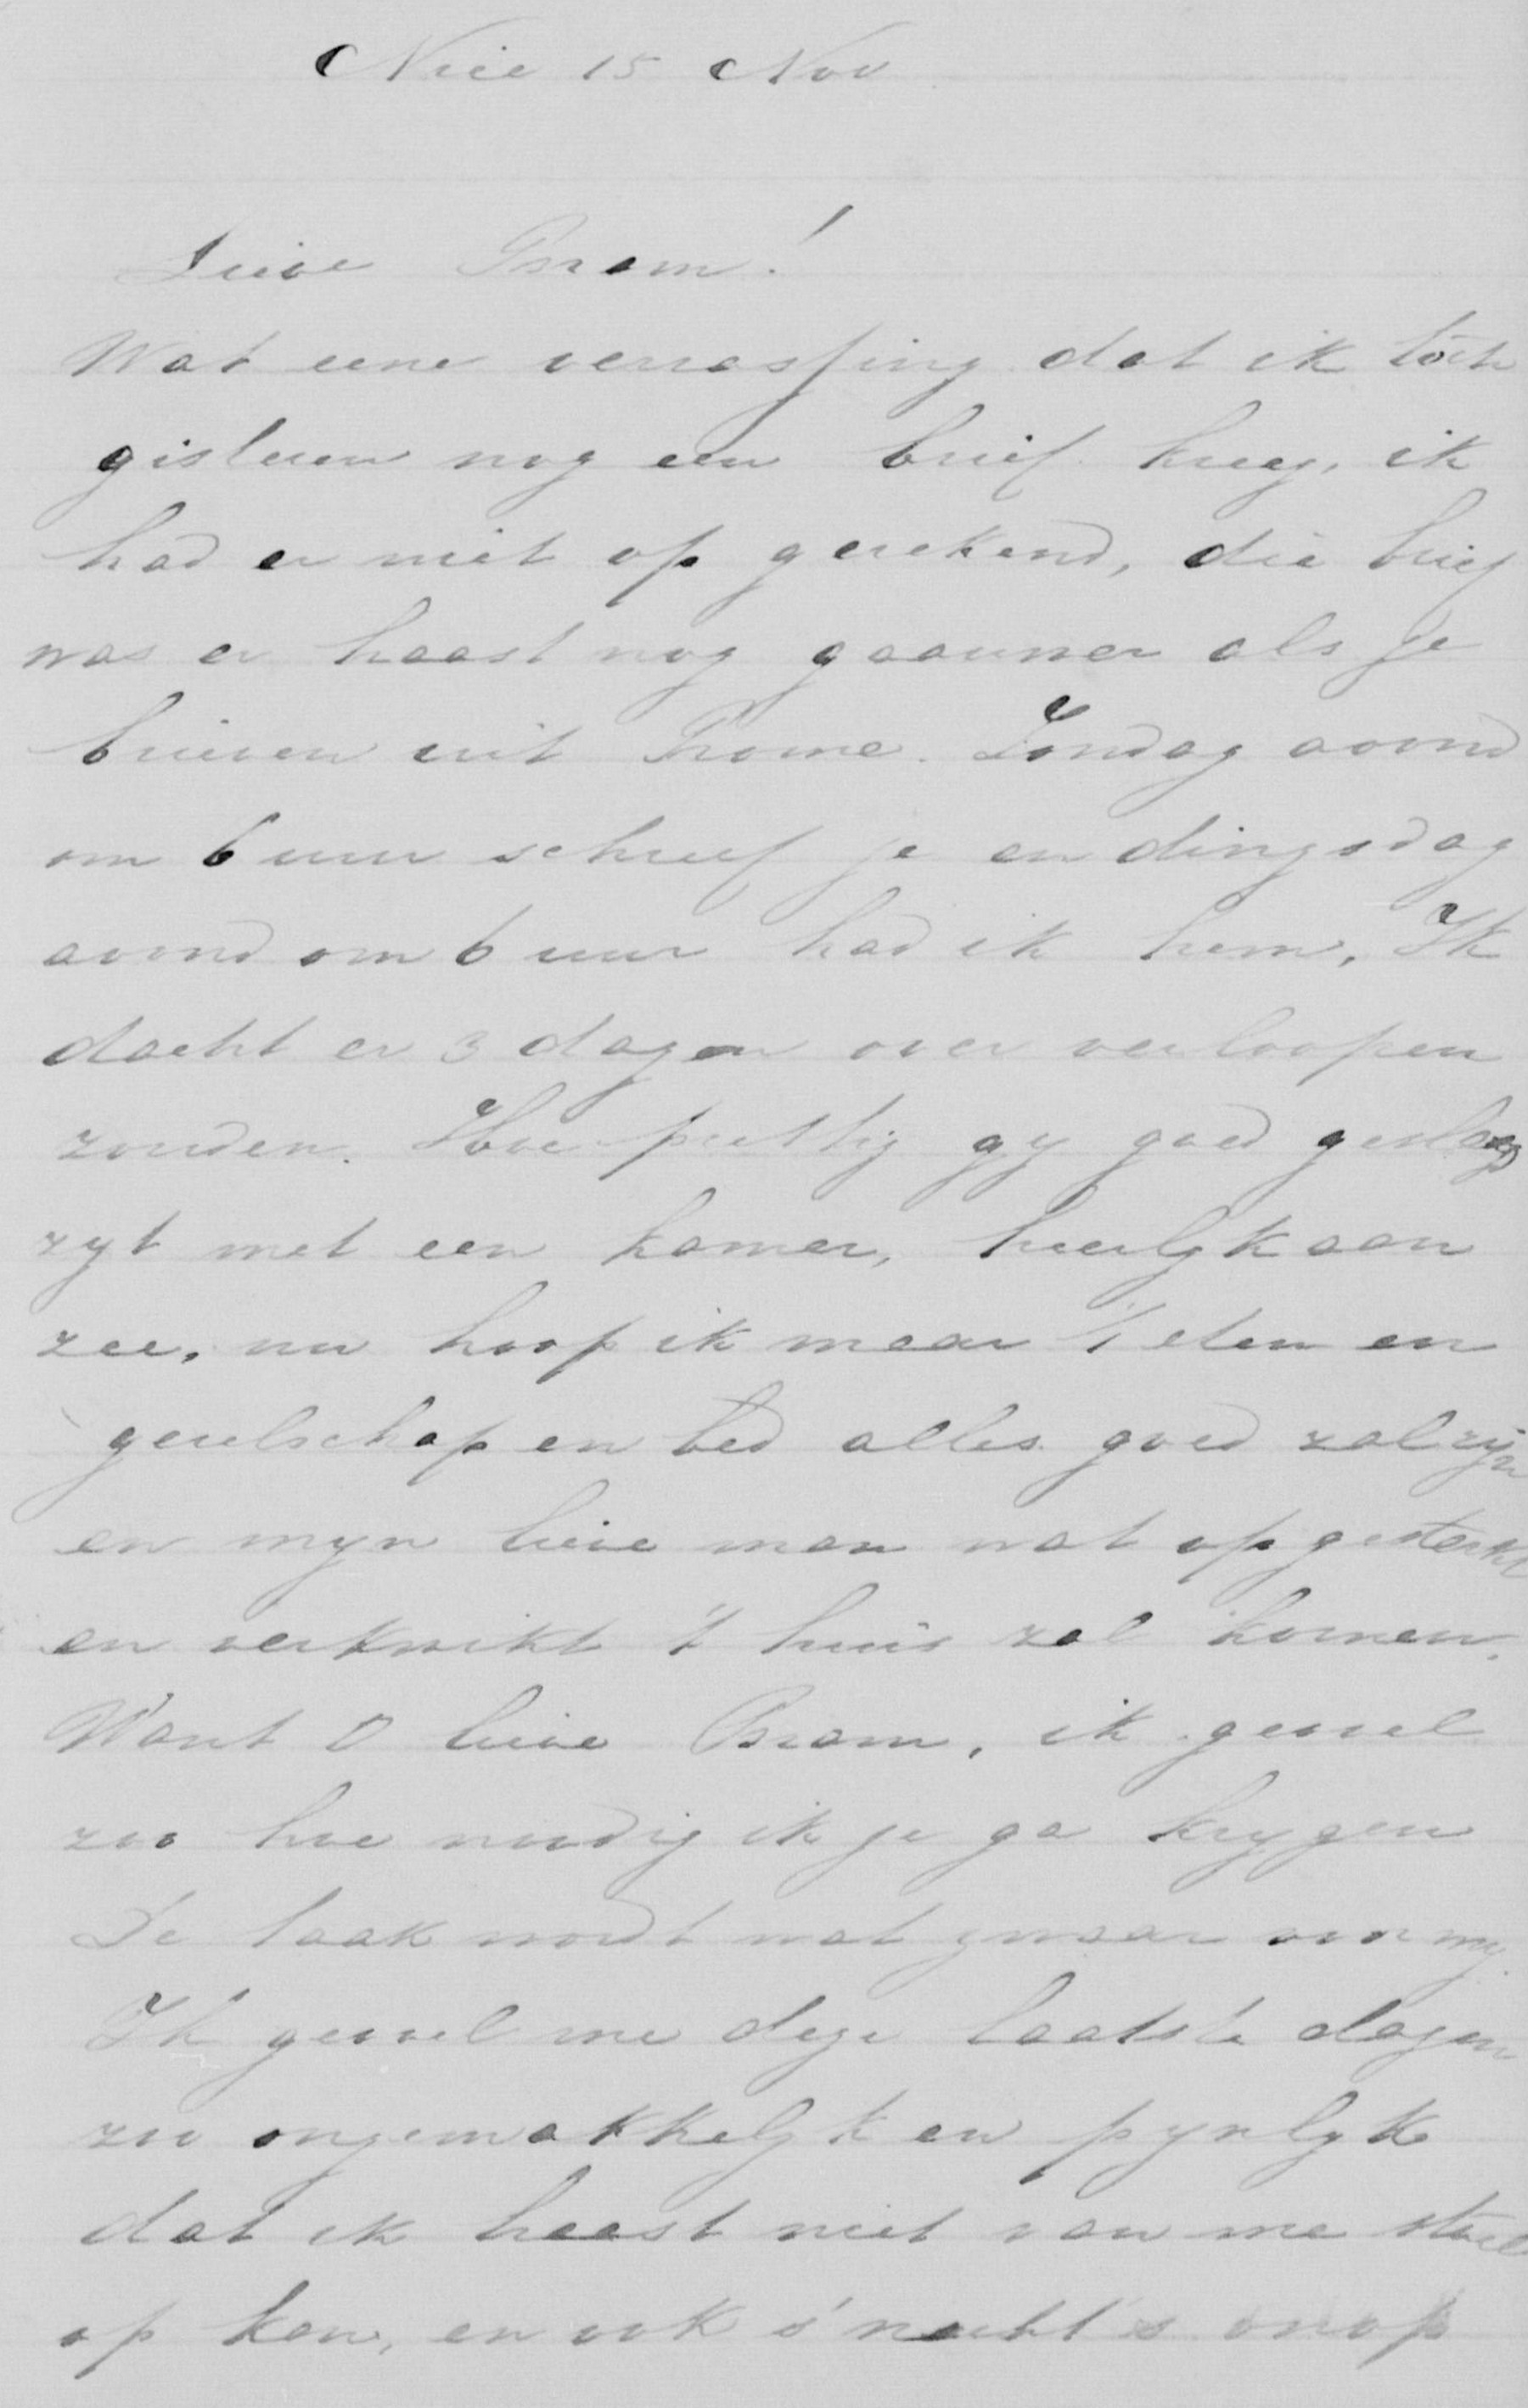 Nice 15 Nov
Lieve Bram!
Wat eene verrassing dat ik tóch
gisteren nog een brief kreeg, ik
had er niet op gerekend, die brief
was er haast nog gaauwer als je
brieven uit Rome. Zondag avond
om 6 uur schreef je en dingsdag
avond om 6 uur had ik hem, Ik
dacht er 3 dagen over verloopen
zouden. Hoe prettig gy goed geslaagd
zyt met een kamer, heerlyk aan
zee, nu hoop ik maar 't eten en
gezelschap en bed alles goed zal zijn
en myn lieve man wat opgesterkt
en verkwikt t' huis zal komen.
Want O lieve Bram, ik gevoel
zoo hoe noodig ik je ga krygen
De taak wordt wat zwaar voor my.
Ik gevoel me deze laatste dagen
zoo ongemakkelyk en pynlyk
dat ik haast niet van me stoel
op kan, en ook s' nachts